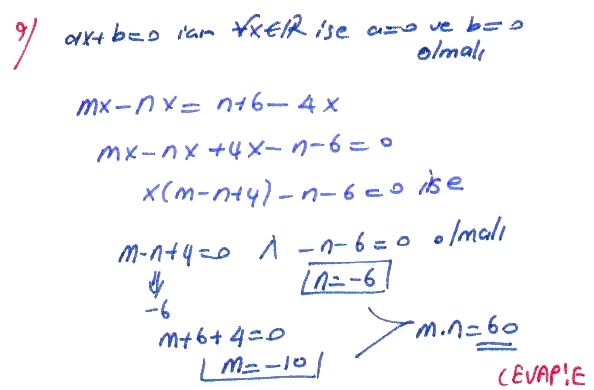 9) ax+b=0 için ∀x∈ℝ ise a=0 ve b=0
olmalı
mx-nx = n+6-4x
mx-nx+4x-n-6=0
x(m-n+4)-n-6=0 ise
m-n+4=0 ∧ -n-6=0 olmalı
⇓ n=-6
-6
m+6+4=0
m=-10
m.n=60
CEVAP:E